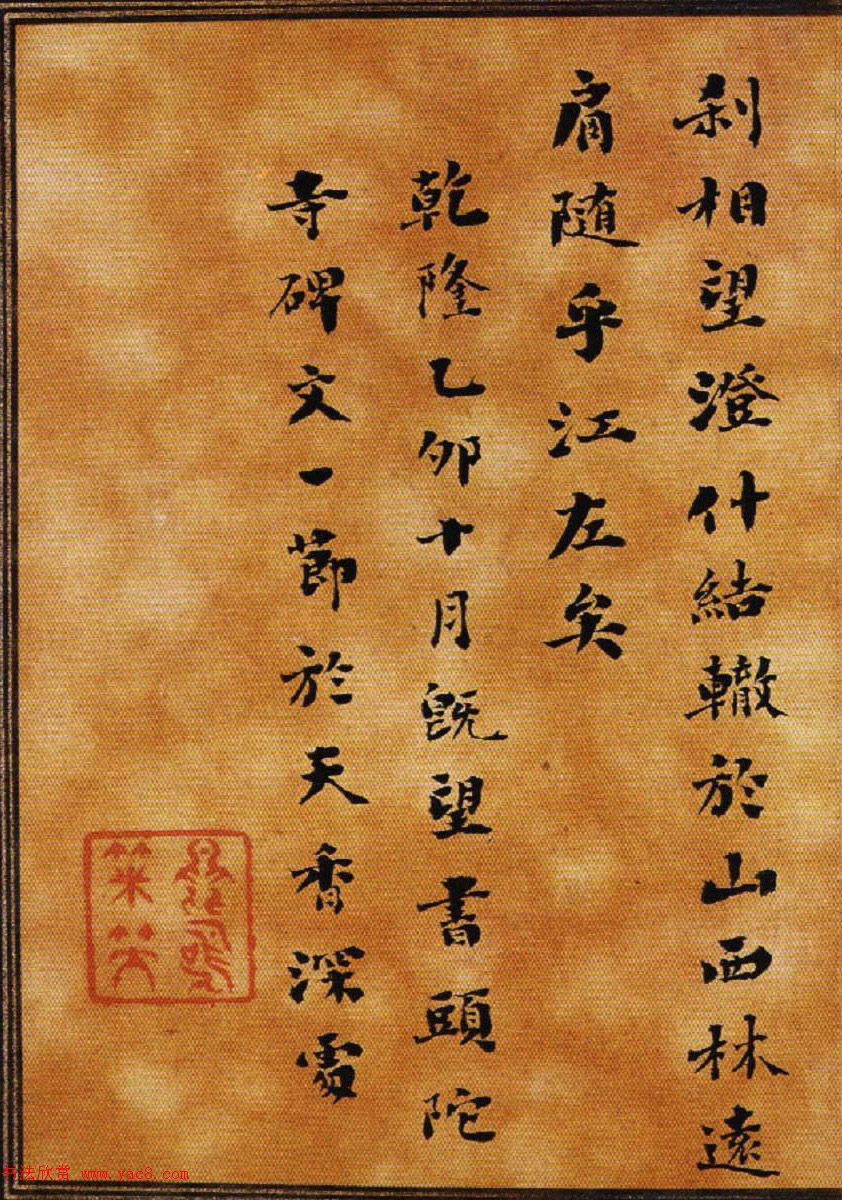 刹相望澄什結轍於山西林遠
肩随乎江左矣
乾隆乙卯十月既望書頭陀
寺碑文一節於天香深處
书法欣赏 www.yac8.com